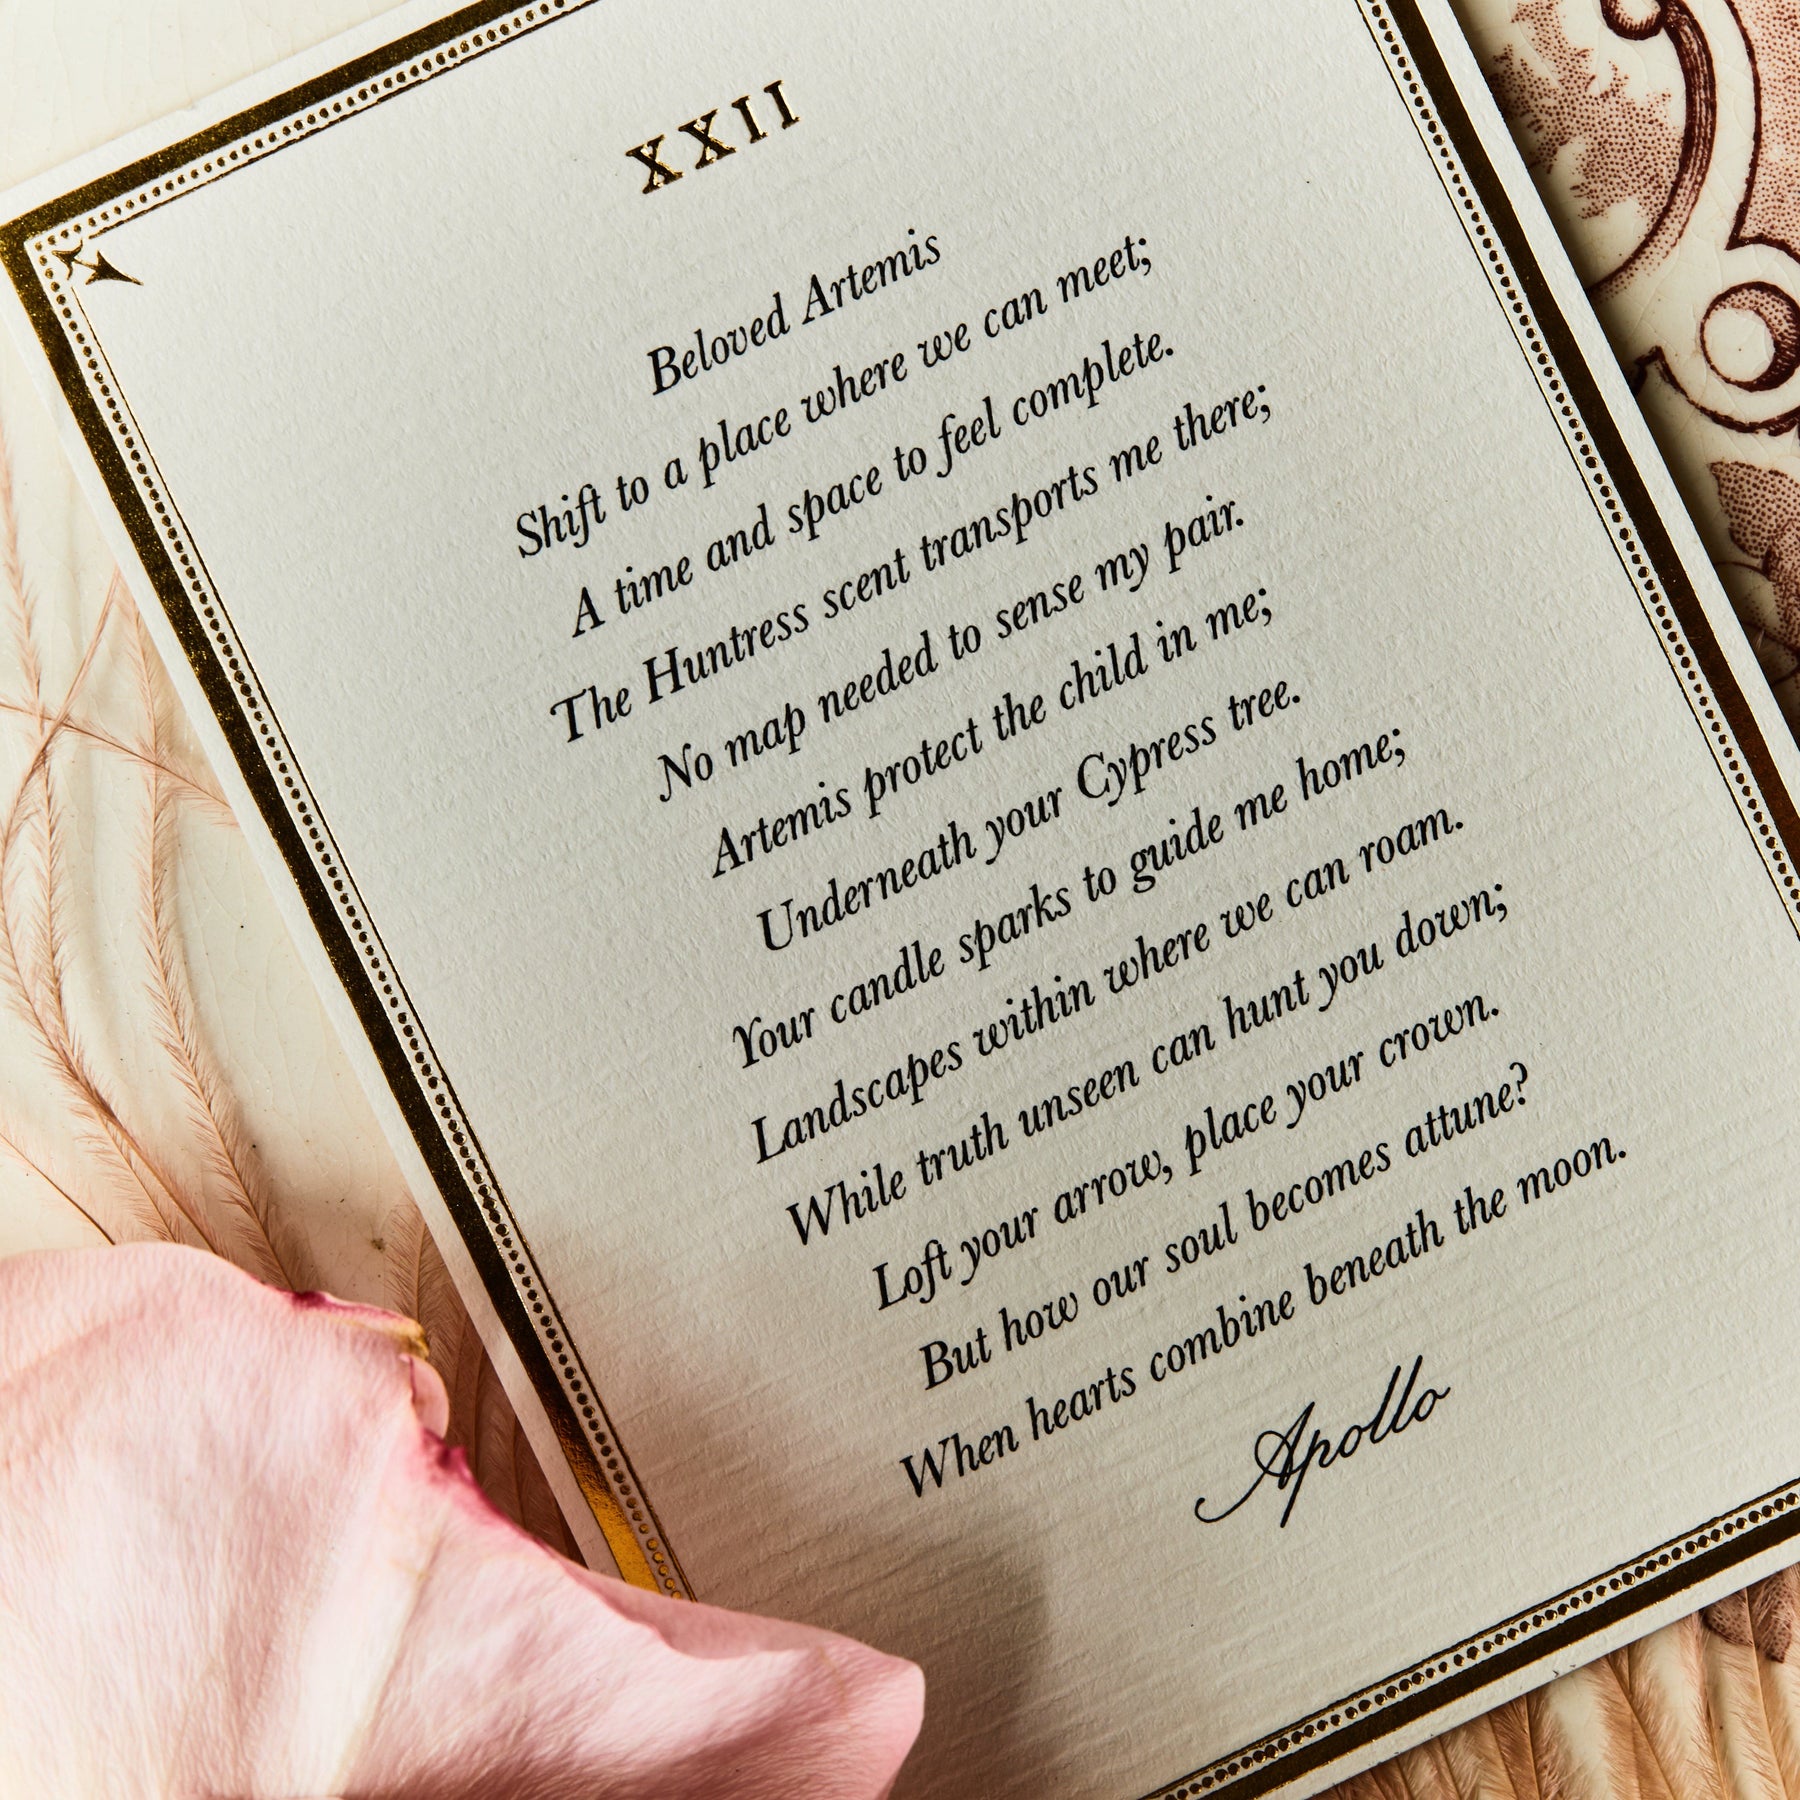 XXII
Beloved Artemis
Shift to a place where we can meet;
A time and space to feel complete.
The Huntress scent transports me there;
No map needed to sense my pair.
Artemis protect the child in me;
Underneath your Cypress tree.
Your candle sparks to guide me home;
Landscapes within where we can roam.
While truth unseen can hunt you down;
Loft your arrow, place your crown.
But how our soul becomes attune?
When hearts combine beneath the moon.
Apollo